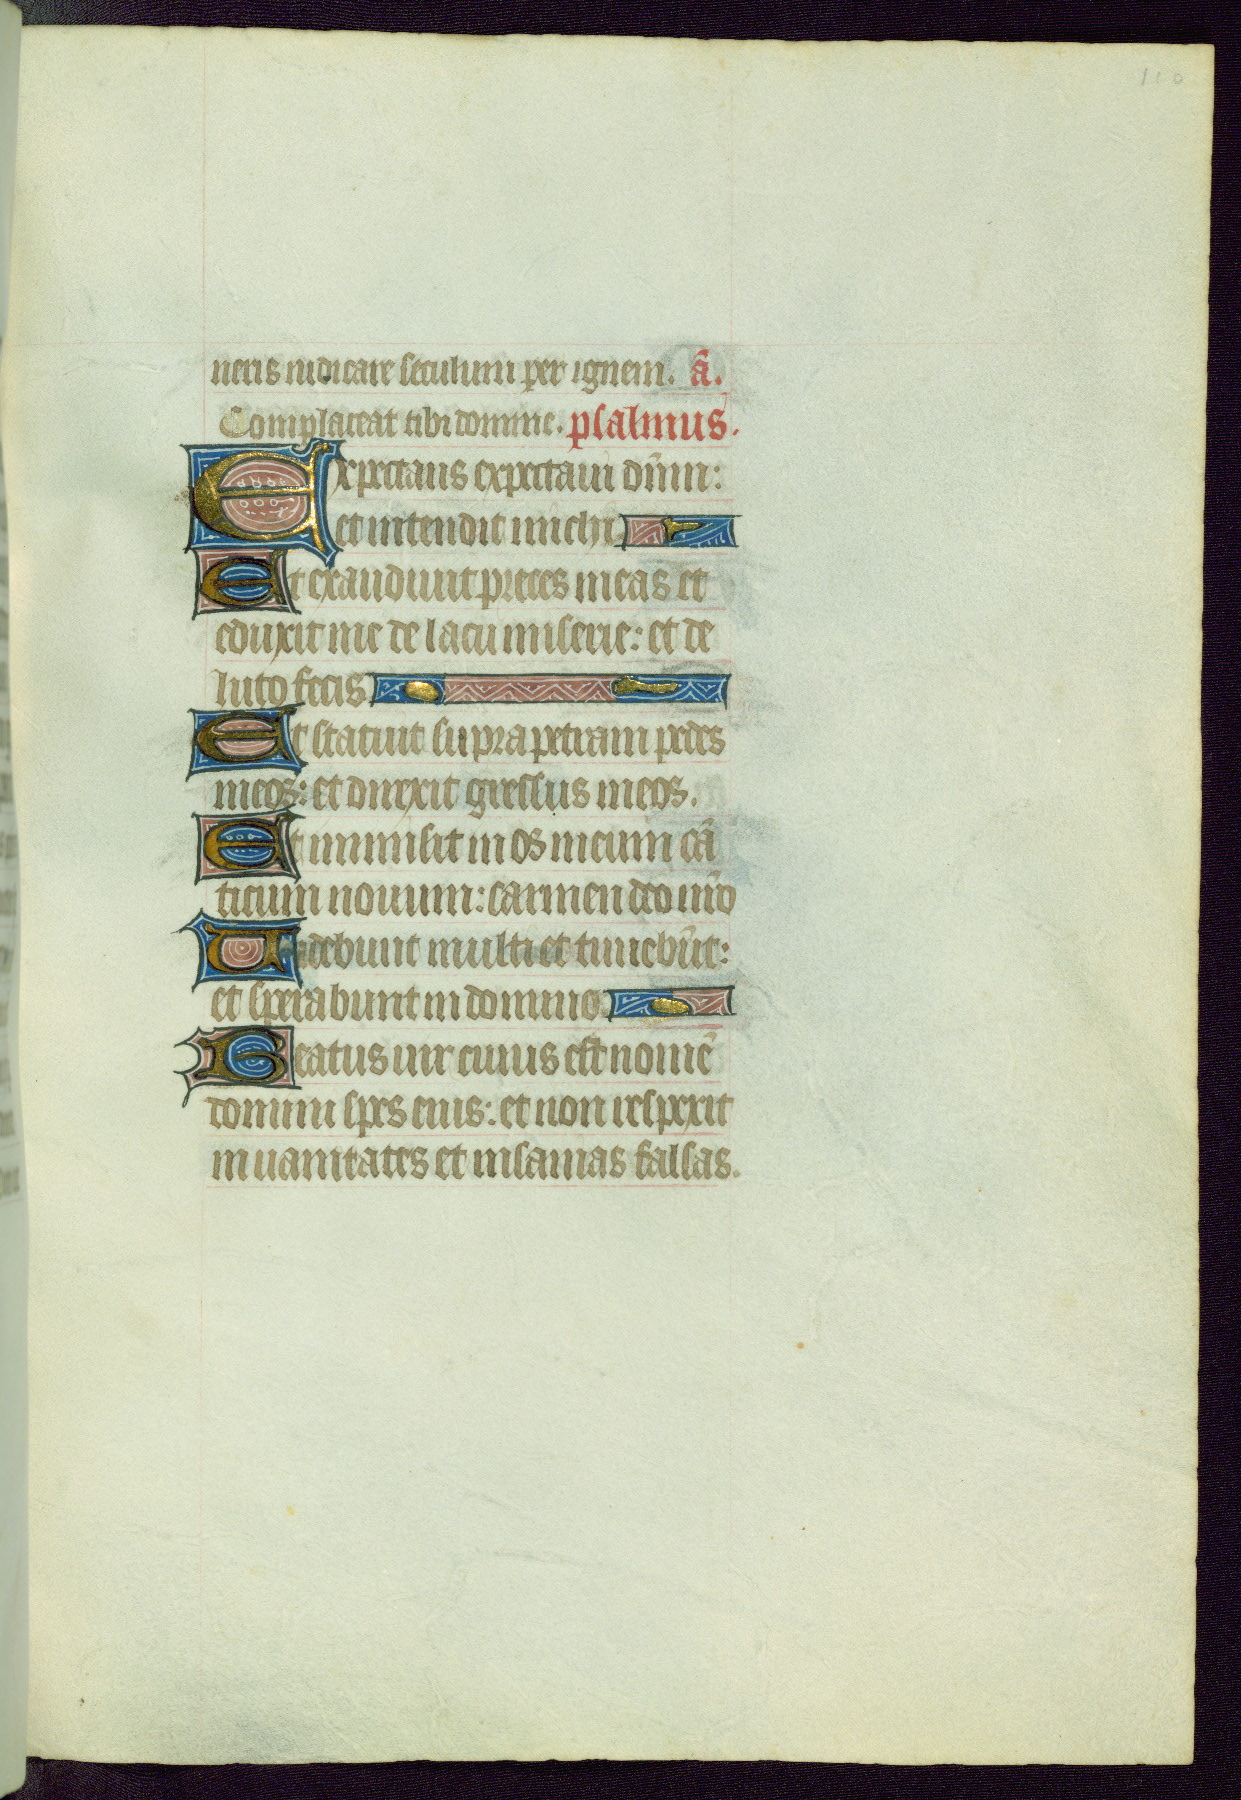 110
neris iudicare seculum per ignem. a̅.
Complaceat tibi domine. psalmus.
Expectans expectaui dn̅m:
et intendit michi
Et exaudiuit preces meas et
eduxit me de lacu miserie: et de
luto fecis
Et statuit supra petram pedes
meos: et direxit gressus meos.
Et inmisit in os meum ca̅
ticum nouum: carmen deo nr̅o
Uidebunt multi et timebu̅t:
et sperabunt in domino
Beatus uir cuius est nome̅
domini spes eius: et non respexit
in uanitates et insanias falsas.